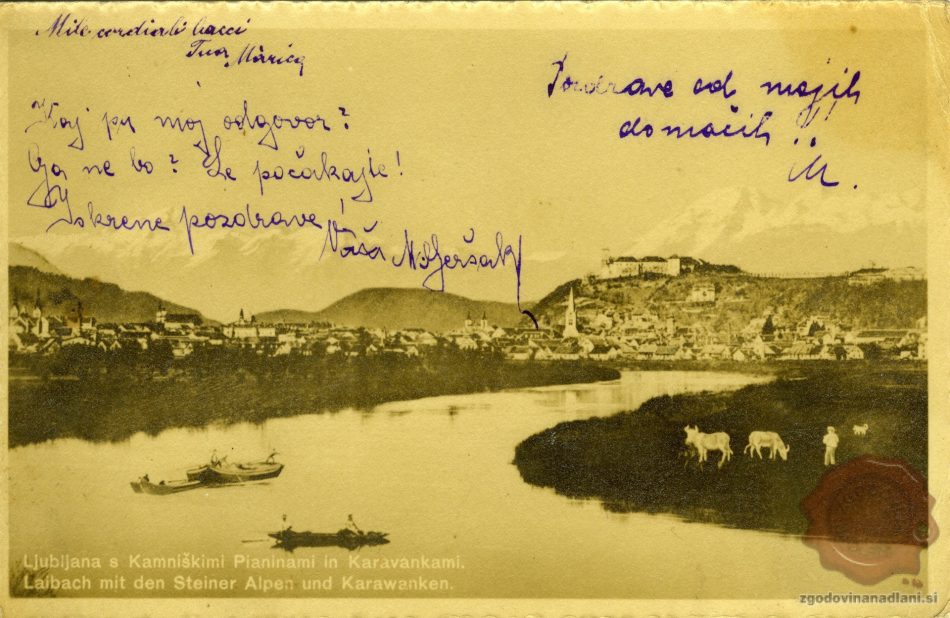 Mile cordiali bacci
Tua Marica
Pozdrave od mojih
domačih!!
M.
Kaj pa moj odgovor?
Ga ne bo? Le počakajte!
Iskrene pozdrave,
Vaša M. Jeršak
Ljubljana s Kamniškimi Planinami in Karavankami.
Laibach mit den Steiner Alpen und Karawanken.
zgodovinanadlani.si